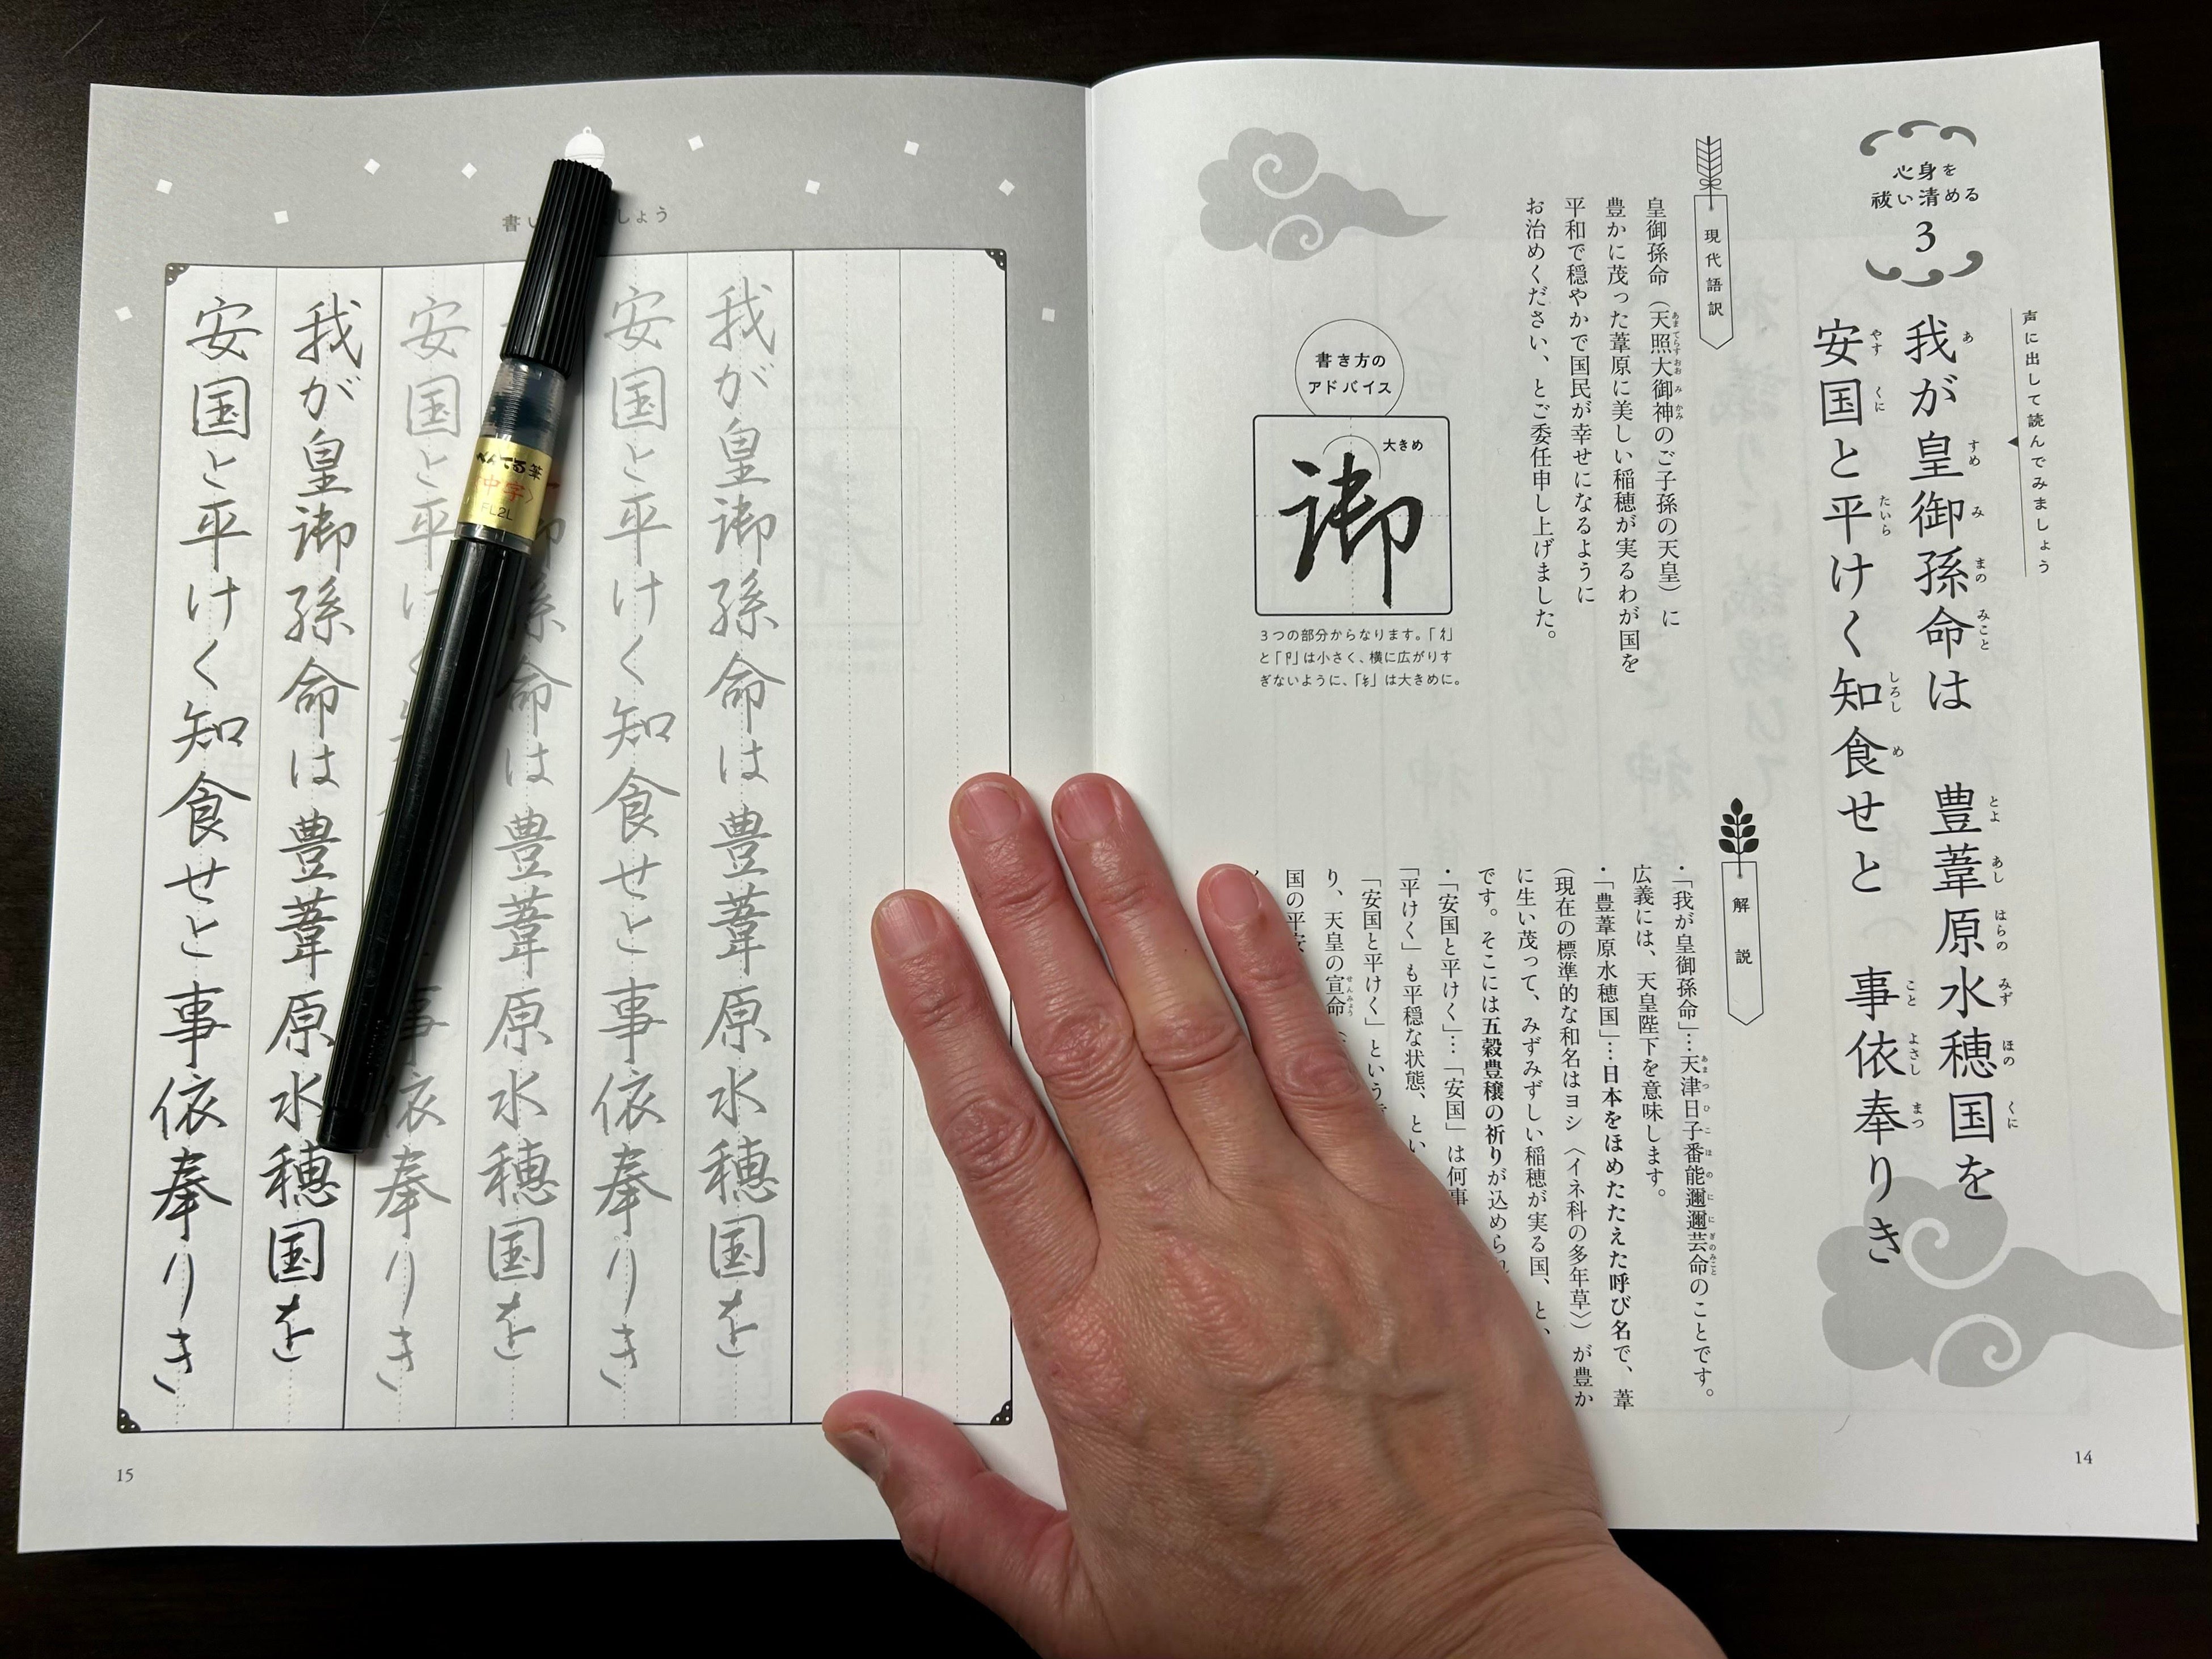 心身を
祓い清める
3
声に出して読んでみましょう
我が皇御孫命は 豊葦原水穂国を
あ すめ み まの みこと とよ あし はらの みず ほの くに
安国と平けく知食せと 事依奉りき
やす くに たいら しろし め こと よさし まつ
現代語訳
皇御孫命（天照大御神のご子孫の天皇）に
あま てらす おお み かみ
豊かに茂った葦原に美しい稲穂が実るわが国を
平和で穏やかで国民が幸せになるように
お治めください、とご委任申し上げました。
書き方の
アドバイス
大きめ
御
3つの部分からなります。「彳」
と「卩」は小さく、横に広がりす
ぎないように、「」は大きめに。
解説
・「我が皇御孫命」…天津日子番能邇邇芸命のことです。
あま つ ひ こ ほ の に に ぎのみこと
広義には、天皇陛下を意味します。
・「豊葦原水穂国」…日本をほめたたえた呼び名で、葦
（現在の標準的な和名はヨシ〈イネ科の多年草〉）が豊か
に生い茂って、みずみずしい稲穂が実る国、と、
です。そこには五穀豊穣の祈りが込められ
・「安国と平けく」…「安国」は何事
「平けく」も平穏な状態、とい
「安国と平けく」という
り、天皇の宣命
せんみょう
国の平安
14
書い しょう
我が皇御孫命は豊葦原水穂国を
安国と平けく知食せと事依奉りき
孫命は豊葦原水穂国を
安国と平 事依奉りき
我が皇御孫命は豊葦原水穂国を
安国と平けく知食せと事依奉りき
ぺんてる筆
〈中字〉
FL2L
15